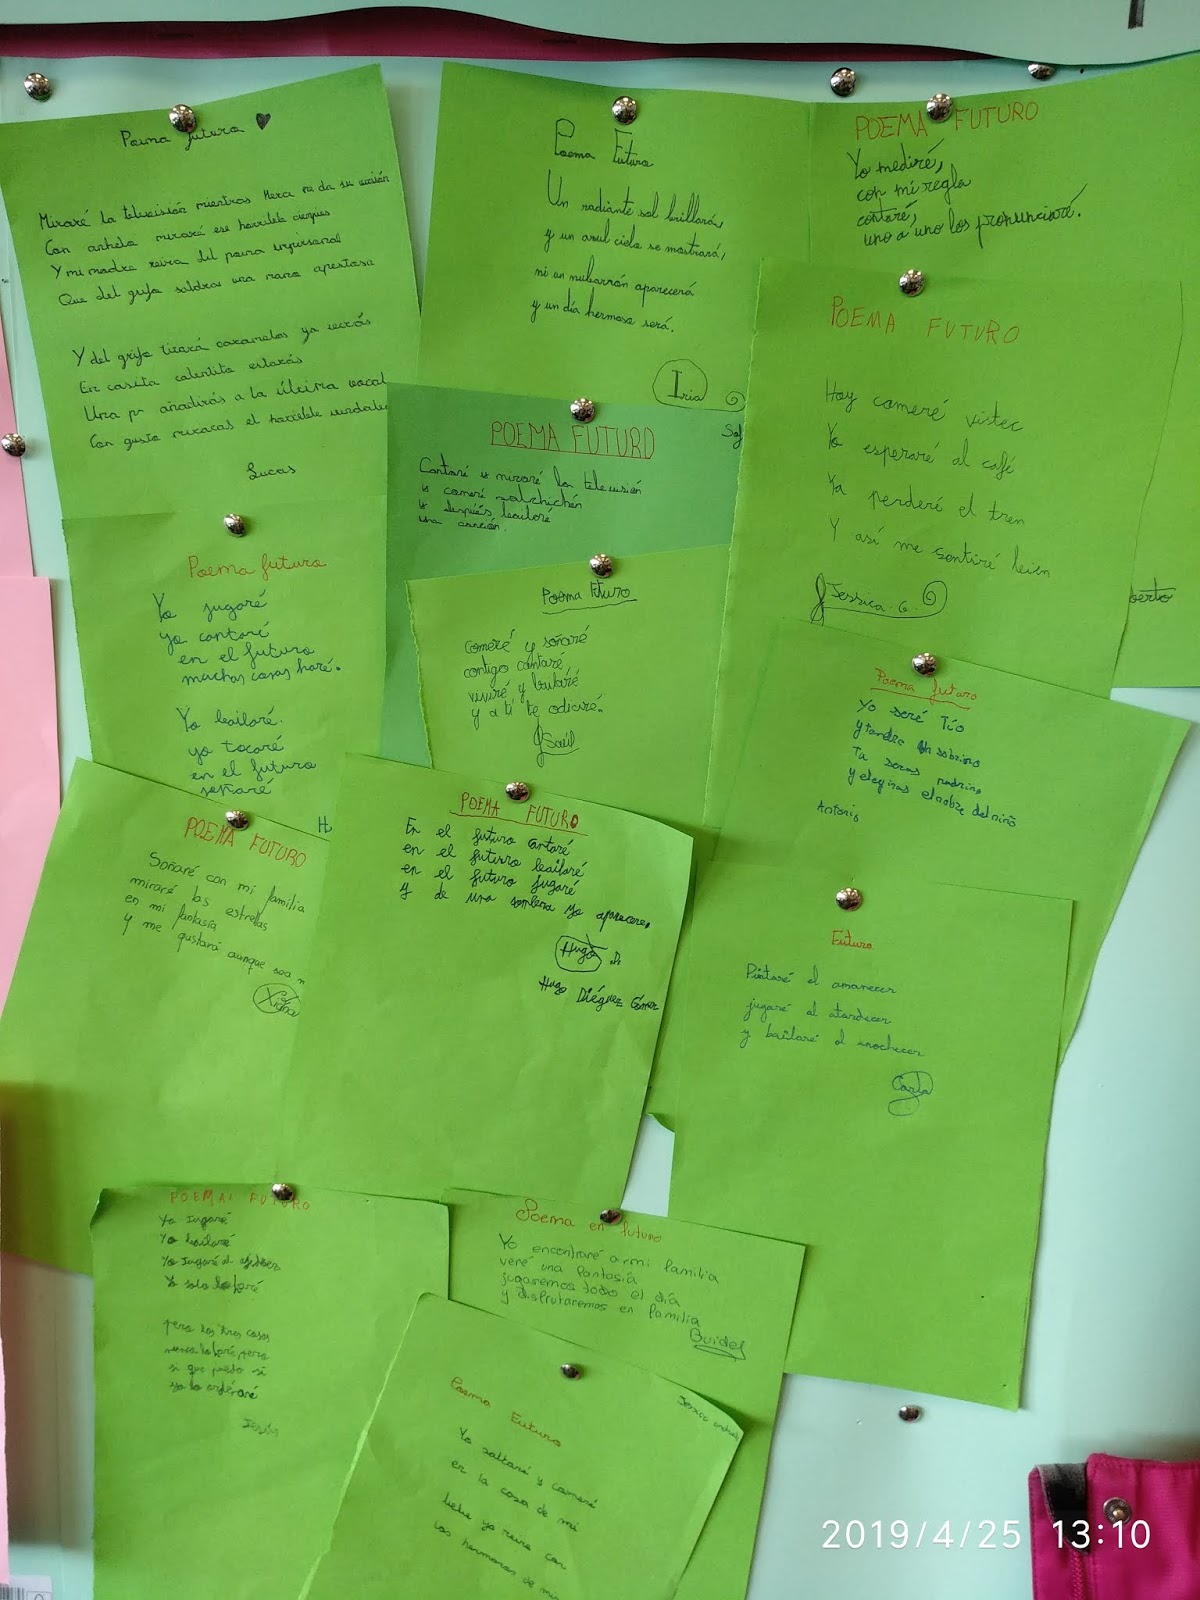 Poema futuro
Miraré la televisión mientras
Con anhelo miraré ese horrible ciempiés
Y mi madre reira del poema
Que del grifo saldrea una rana apestosa
Y del grifo tirará caramelos ya verás
En casita calentita estarás
Una añadirás a la última vocal
Con gusto el horrible
Lucas
Poema Futuro
Un radiante sol brillará,
y un azul cielo se mostrará,
ni un nubarrón aparecerá
y un día hermoso será.
Iria
POEMA FUTURO
Yo mediré,
con mi regla
contaré,
uno a uno los pronunciaré.
POEMA FUTURO
Hoy comeré vistec
Yo esperaré al café
Ya perderé el tren
Y así me sentiré bien
Jessica. G.
berto
POEMA FUTURO
Sof
Cantaré y miraré la televisión
y comeré salchichón
y después bailaré
una canción.
Poema futuro
Yo jugaré
yo cantaré
en el futuro
muchas cosas haré.
Yo bailaré.
yo tocaré
en el futuro
señaré
H
Poema Futuro
Comeré y soñaré
contigo cantaré,
viviré y
y a tí te odiaré.
Saúl
Poema futuro
Yo seré Tío
y tendre un sobrino
Tu seras padrino
y elegiras el nobre del niño
Antonio
POEMA FUTURO
Soñaré con mi familia
miraré las estrellas
en mi fantasía
y me gustará aunque sea m
Xiana
POEMA FUTURO
En el futuro cantaré
en el futuro bailaré
en el futuro jugaré
y de una sombra yo apareceré.
Hugo D.
Hugo Diéguez Gómez
Futuro
Pintaré el amanecer
jugaré al atardecer
y bailaré al anochecer
Carla
POEMA FUTURO
Yo jugaré
Yo bailaré
Yo jugaré al ajedrez
Yo solo lo haré
pero los tres cosas
nunca lo haré pero
si que puedo si
yo lo
Jesús
Poema en futuro
Yo encontraré a mi familia
veré una fantasía
jugaremos todo el día
y disfrutaremos en familia
Buidel
Poema Futuro
Yo saltaré y comeré
en la casa de mi
bebe yo reire con
las hermanas de mi
2019/4/25 13:10